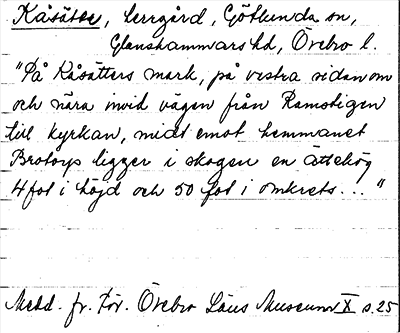 Kåsätter, herrgård, Götlunda sn,
Glanshammars hd, Örebro l.
"På Kåsätters mark, på vestra sidan om
och nära invid vägen från Ramstigen
till kyrkan, midt emot hemmanet
Brotorp ligger i skogen en ättehög
4 fot i höjd och 50 fot i omkrets..."
Medd. fr. För. Örebro Läns Museum X s. 25